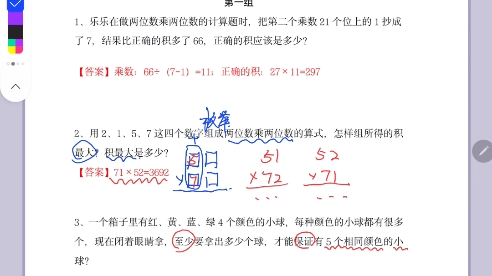 第一组
1、乐乐在做两位数乘两位数的计算题时，把第二个乘数 21 个位上的 1 抄成
了 7，结果比正确的积多了 66，正确的积应该是多少？
【答案】乘数：66÷（7-1）=11；正确的积：27×11=297
枚举
2、用 2、1、5、7 这四个数字组成两位数乘两位数的算式，怎样组所得的积
最大？积最大是多少？
【答案】71×52=3692
5□
×7□
51
×72
...
52
×71
...
3、一个箱子里有红、黄、蓝、绿 4 个颜色的小球，每种颜色的小球都有很多
个，现在闭着眼睛拿，至少要拿出多少个球，才能保证有 5 个相同颜色的小
球？